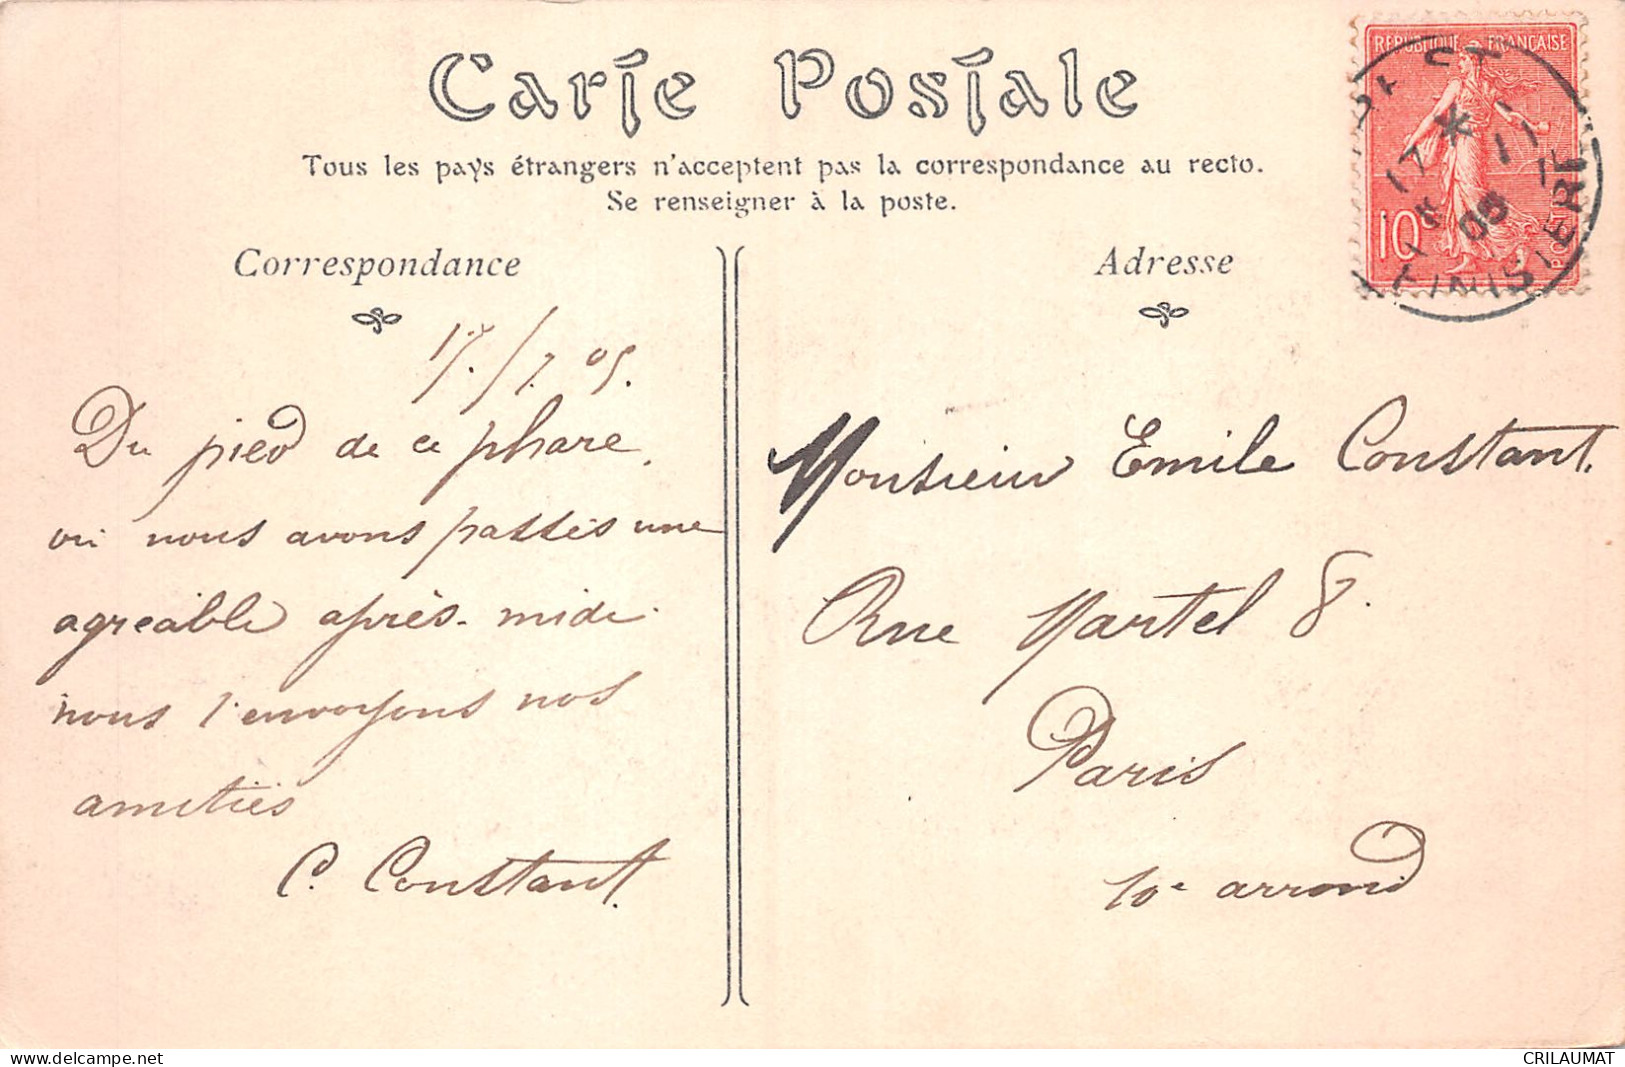 Carte Postale
Tous les pays étrangers n'acceptent pas la correspondance au recto.
Se renseigner à la poste.
Correspondance
Adresse
REPUBLIQUE FRANÇAISE
10c
POSTES
17 *
05
FINISTERE
7. 05.
Du pied de ce phare,
où nous avons passés une
agréable après-midi
nous t'envoyons nos
amitiés
C. Constant.
Monsieur Emile Constant.
Rue Martel 8.
Paris
10e arrond
CRILAUMAT